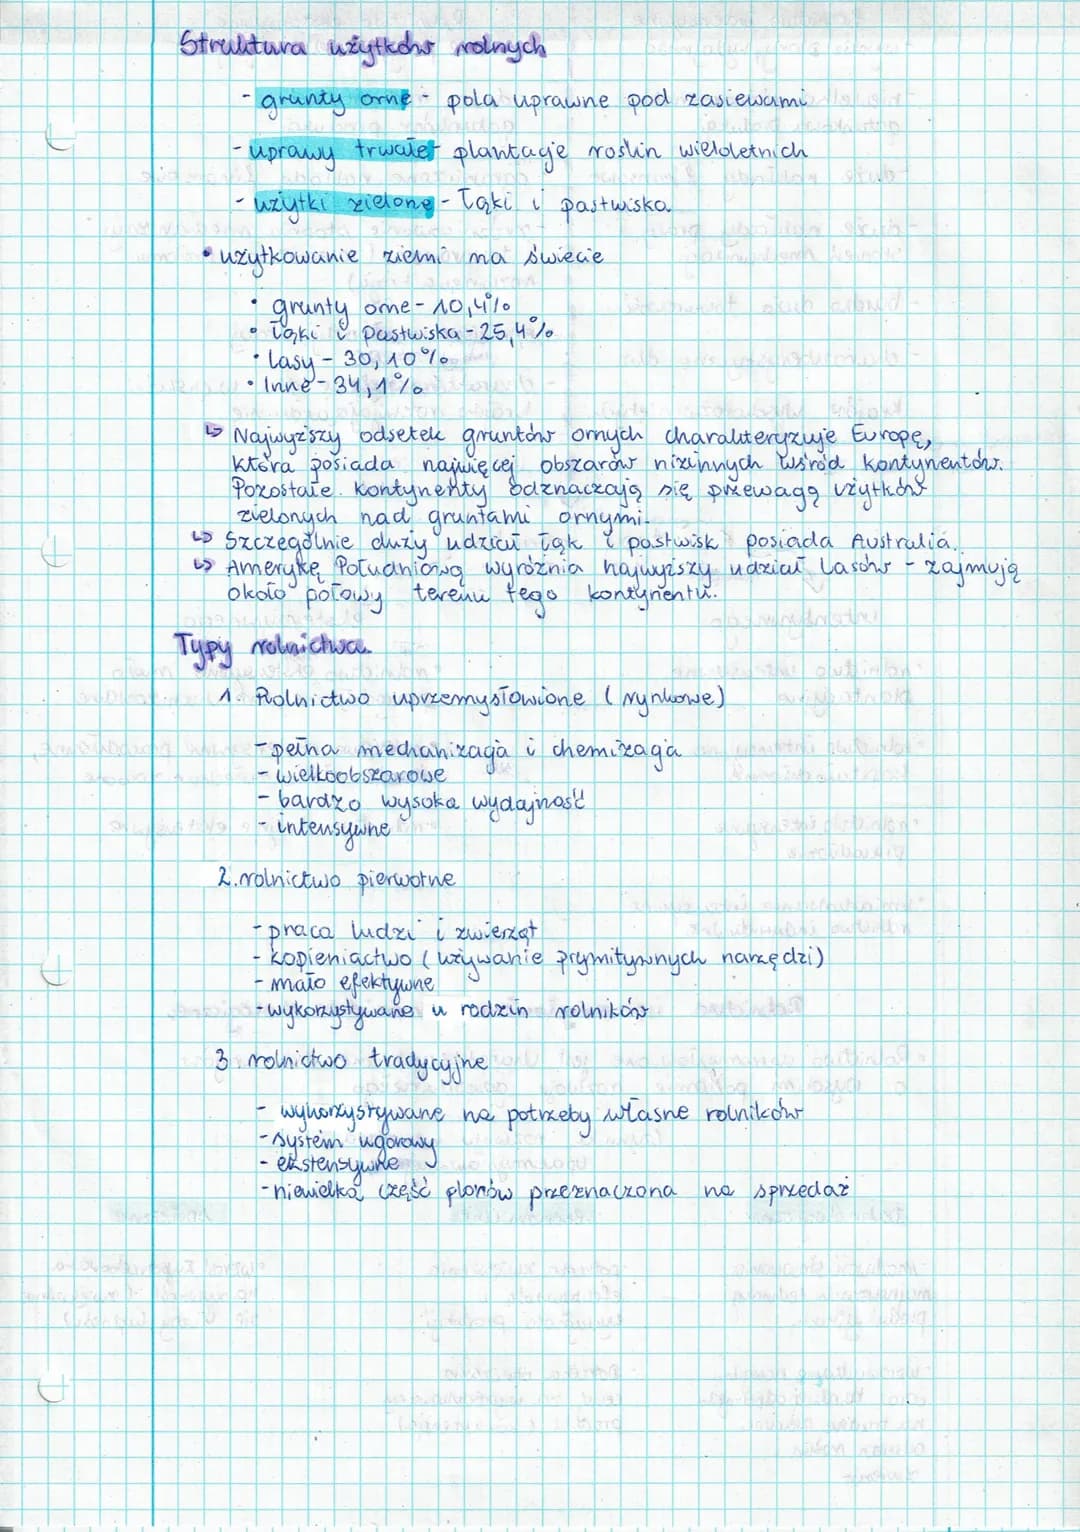 Struktura użytków rolnych
- grunty orne - pola uprawne pod zasiewami
- uprawy trwałe - plantacje roślin wieloletnich
- użytki zielone - łąki i pastwiska
• użytkowanie ziemi na świecie
• grunty orne - 10,4%
• łąki i pastwiska - 25,4%
• lasy - 30,10%
• Inne - 34,1%
↳ Najwyższy odsetek gruntów ornych charakteryzuje Europę,
która posiada najwięcej obszarów nizinnych wśród kontynentów.
Pozostałe kontynenty odznaczają się przewagą użytków
zielonych nad gruntami ornymi.
↳ Szczególnie duży udział łąk i pastwisk posiada Australia.
↳ Amerykę Południową wyróżnia najwyższy udział lasów - zajmują
około połowy terenu tego kontynentu.
Typy rolnictwa
1. Rolnictwo uprzemysłowione (rynkowe)
- pełna mechanizacja i chemizacja
- wielkoobszarowe
- bardzo wysoka wydajność
- intensywne
2. rolnictwo pierwotne
- praca ludzi i zwierząt
- kopieniactwo (używanie prymitywnych narzędzi)
- mało efektywne
- wykorzystywane u rodzin rolników
3. rolnictwo tradycyjne
- wykorzystywane na potrzeby własne rolników
- system ugorowy
- ekstensywne
- niewielka część plonów przeznaczona na sprzedaż